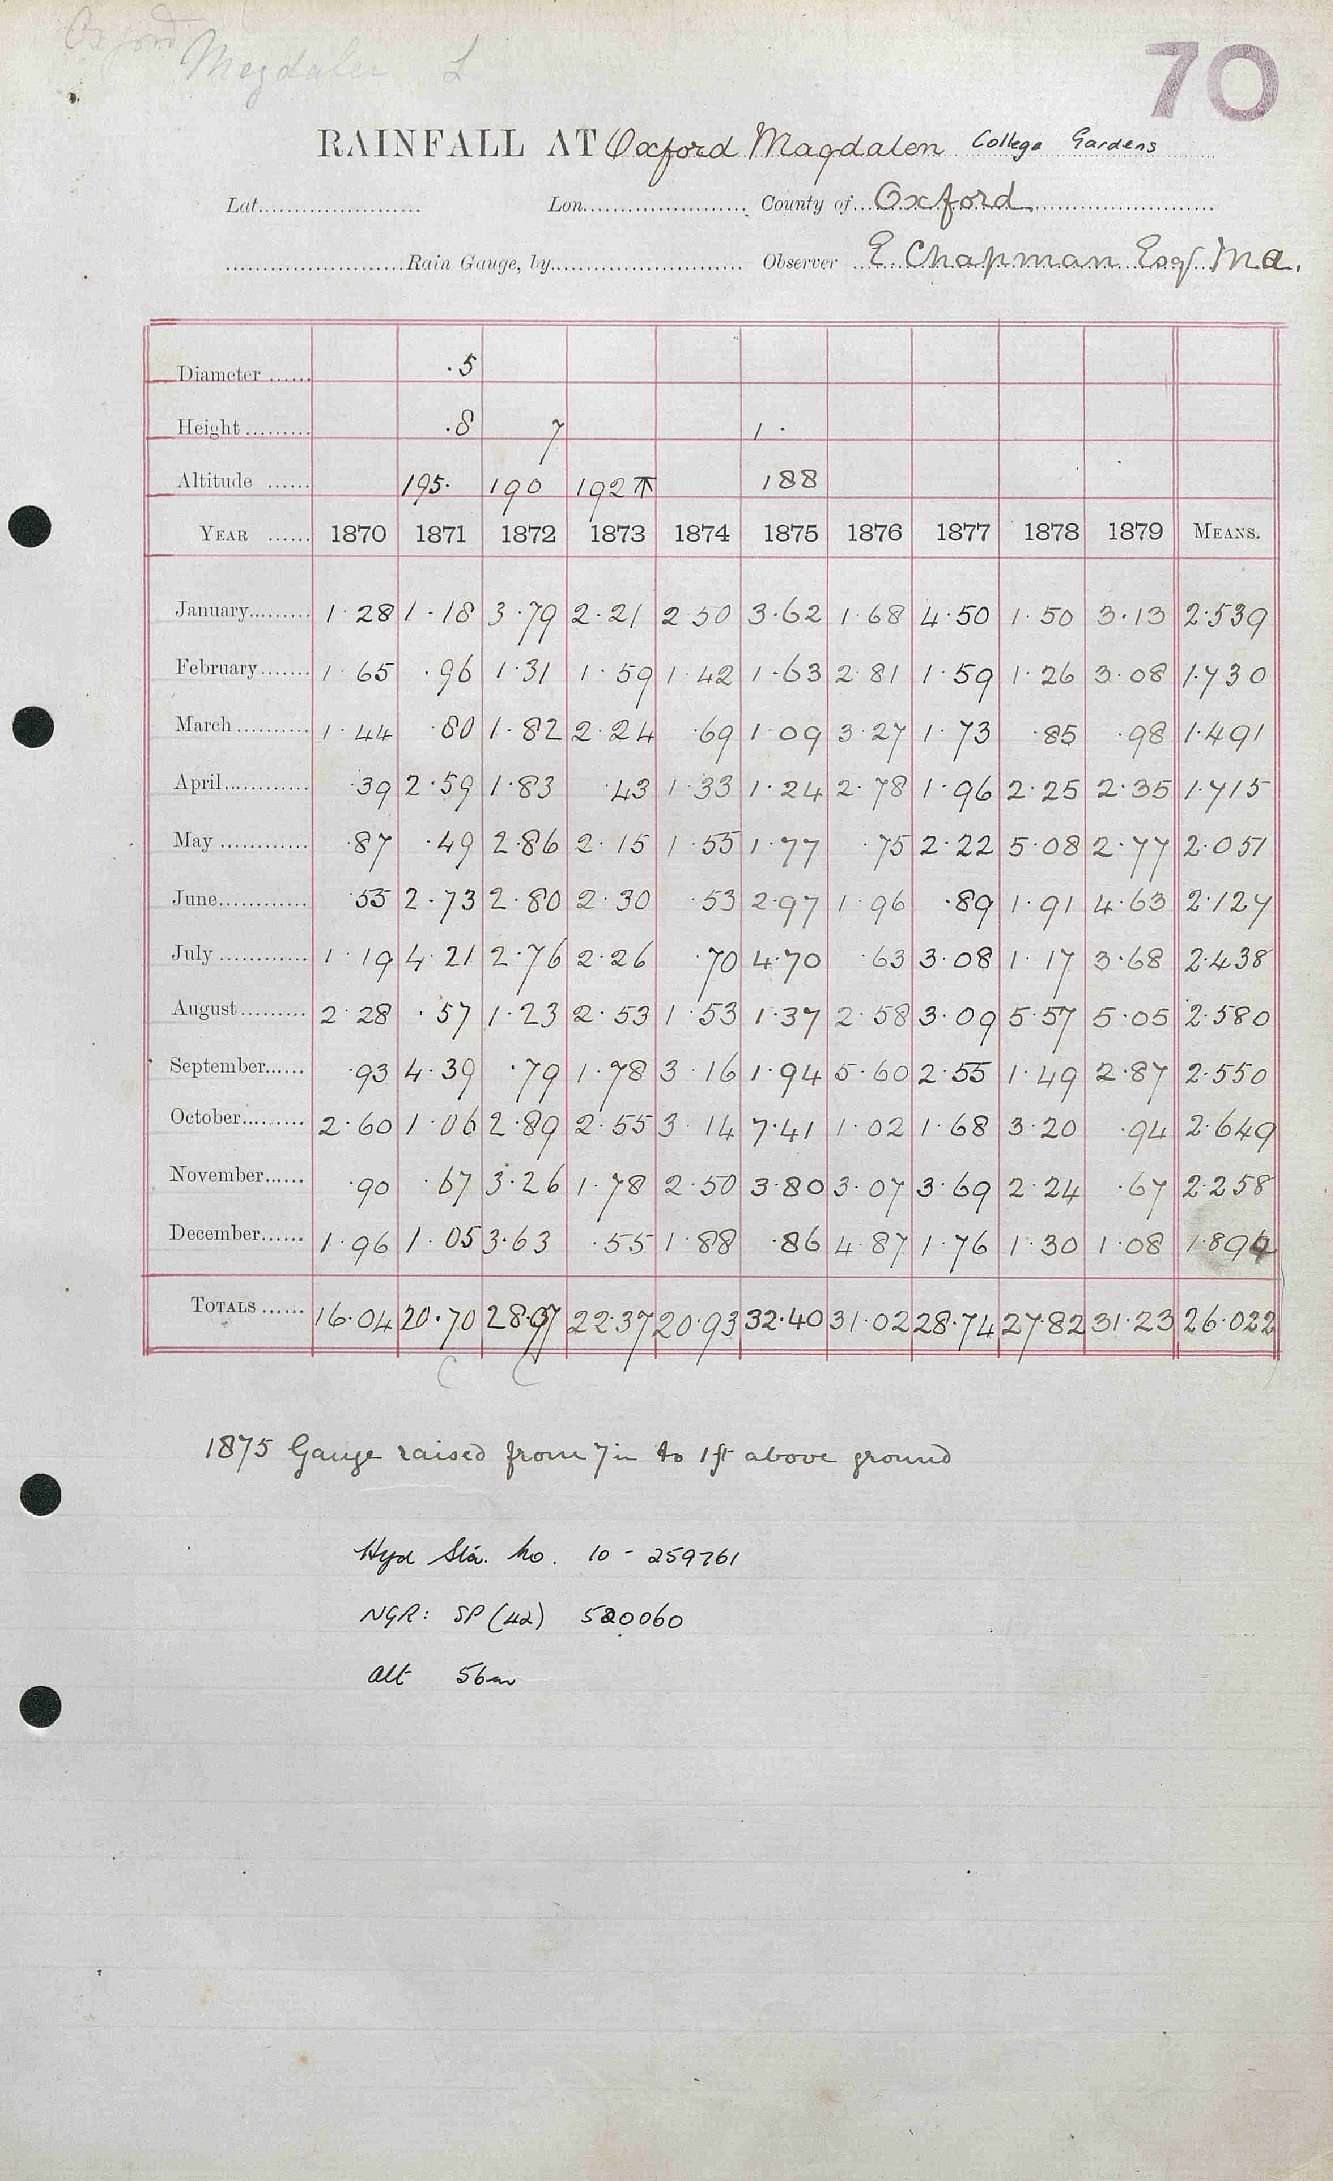 Oxford
Magdalen
70
RAINFALL AT Oxford Magdalen College Gardens
Lat. Lon. County of Oxford
Rain Gauge, by Observer E. Chapman Esq M.A.
Diameter ·5
Height ·8 7 1·
Altitude 195· 190 192 ↑ 188
YEAR 1870 1871 1872 1873 1874 1875 1876 1877 1878 1879 MEANS.
January 1·28 1·18 3·79 2·21 2·50 3·62 1·68 4·50 1·50 3·13 2·539
February 1·65 ·96 1·31 1·59 1·42 1·63 2·81 1·59 1·26 3·08 1·730
March 1·44 ·80 1·82 2·24 ·69 1·09 3·27 1·73 ·85 ·98 1·491
April ·39 2·59 1·83 ·43 1·33 1·24 2·78 1·96 2·25 2·35 1·715
May ·87 ·49 2·86 2·15 1·55 1·77 ·75 2·22 5·08 2·77 2·051
June ·55 2·73 2·80 2·30 ·53 2·97 1·96 ·89 1·91 4·63 2·127
July 1·19 4·21 2·76 2·26 ·70 4·70 ·63 3·08 1·17 3·68 2·438
August 2·28 ·57 1·23 2·53 1·53 1·37 2·58 3·09 5·57 5·05 2·580
September ·93 4·39 ·79 1·78 3·16 1·94 5·60 2·55 1·49 2·87 2·550
October 2·60 1·06 2·89 2·55 3·14 7·41 1·02 1·68 3·20 ·94 2·649
November ·90 ·67 3·26 1·78 2·50 3·80 3·07 3·69 2·24 ·67 2·258
December 1·96 1·05 3·63 ·55 1·88 ·86 4·87 1·76 1·30 1·08 1·894
TOTALS 16·04 20·70 28·97 22·37 20·93 32·40 31·02 28·74 27·82 31·23 26·022
1875 Gauge raised from 7 in to 1 ft above ground
Hyd Sta. No. 10 - 259761
NGR: SP (42) 520060
Alt 56m